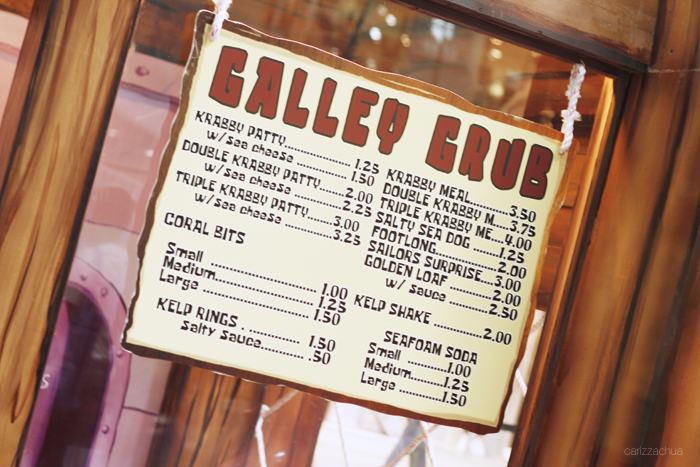 GALLEY GRUB
KRABBY PATTY.................. 1.25
w/sea cheese ................ 1.50
DOUBLE KRABBY PATTY......2.00
w/sea cheese ................ 2.25
TRIPLE KRABBY PATTY......3.00
w/sea cheese ................3.25
CORAL BITS
Small ............................1.00
Medium.........................1.25
Large ............................1.50
KELP RINGS . .................. 1.50
Salty Sauce............... .50
KRABBY MEAL..........3.50
DOUBLE KRABBY M....3.75
TRIPLE KRABBY ME...4.00
SALTY SEA DOG .......1.25
FOOTLONG...............2.00
SAILORS SURPRISE...3.00
GOLDEN LOAF ..........2.00
w/ sauce ...........2.50
KELP SHAKE ..............2.00
SEAFOAM SODA
Small ............1.00
Medium.........1.25
Large ............1.50
S
carizzachua